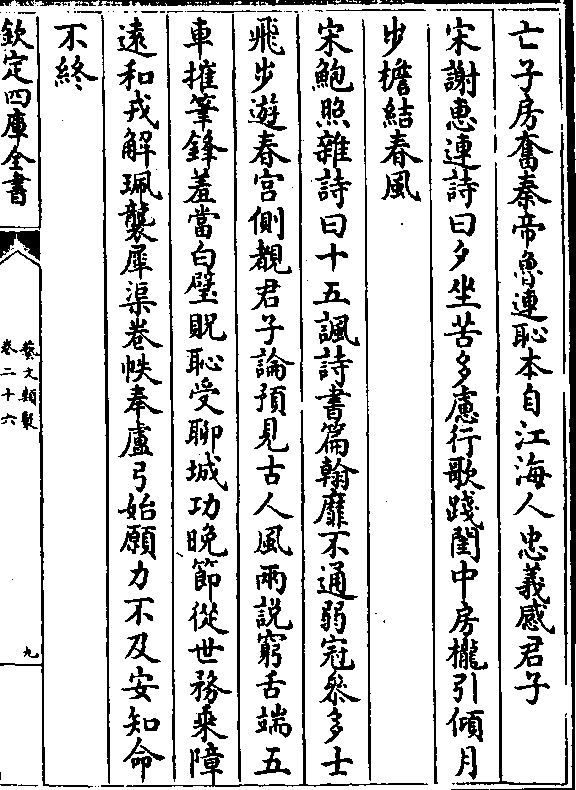 亡子房奮秦帝魯連恥本自江海人忠義感君子
宋謝惠連詩曰夕坐苦多慮行歌踐閨中房櫳引傾月
步檐結春風
宋鮑照雜詩曰十五諷詩書篇翰靡不通弱冠參多士
飛步遊春宮側覩君子論預見古人風兩說窮舌端五
車摧筆鋒羞當白璧貺恥受聊城功晚節從世務乘障
遠和戎解珮襲犀渠卷帙奉盧弓始願力不及安知命
不終
欽定四庫全書
藝文類聚
卷二十六
九